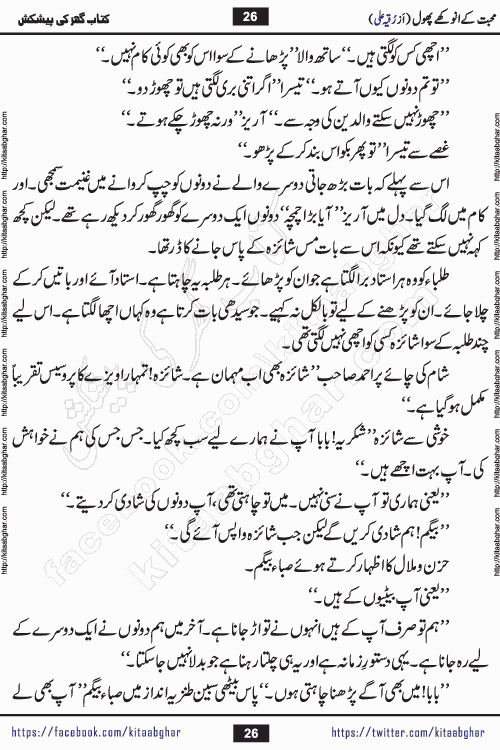 محبت کے انوکھے پھول (از رقیہ علی) 26 کتاب گھر کی پیشکش
’’اچھی کس کو لگتی ہیں۔‘‘ ساتھ والا ’’پڑھانے کے سوا اس کو بھی کوئی کام نہیں۔‘‘
’’تو تم دونوں کیوں آتے ہو۔‘‘ تیسرا ’’اگر اتنی بری لگتی ہیں تو چھوڑ دو۔‘‘
’’چھوڑ نہیں سکتے والدین کی وجہ سے۔‘‘ آریز ’’ورنہ چھوڑ چکے ہوتے۔‘‘
غصے سے تیسرا ’’تو پھر بکواس بند کر کے پڑھو۔‘‘
اس سے پہلے کہ بات بڑھ جاتی دوسرے والے نے دونوں کو چپ کروانے میں غنیمت سمجھی۔ اور
کام میں لگ گیا۔ دل میں آریز ’’آیا بڑا چمچہ‘‘ دونوں ایک دوسرے کو گھور گھور کر دیکھ رہے تھے۔ لیکن کچھ
کہہ نہیں سکتے تھے کیونکہ اس سے بات مس شائزہ کے پاس جانے کا ڈر تھا۔
طلباء کو وہ ہر استاد برا لگتا ہے جو ان کو پڑھائے۔ ہر طلبہ یہ چاہتا ہے۔ استاد آئے اور باتیں کر کے
چلا جائے۔ ان کو پڑھنے کے لیے تو بالکل نہ کہیے۔ جو سیدھی بات کرتا ہے وہ کہاں اچھا لگتا ہے۔ اس لیے
چند طلبہ کے سوا شائزہ کسی کو اچھی نہیں لگتی تھی۔
شام کی چائے پر احمد صاحب ’’شائزہ بھی اب مہمان ہے۔ شائزہ! تمہارا ویزے کا پروسیس تقریباً
مکمل ہو گیا ہے۔‘‘
خوشی سے شائزہ ’’شکریہ! بابا آپ نے ہمارے لیے سب کچھ کیا۔ جس جس کی ہم نے خواہش
کی۔ آپ بہت اچھے ہیں۔‘‘
’’یعنی ہماری تو آپ نے سنی نہیں۔ میں تو چاہتی تھی، آپ دونوں کی شادی کر دیتے۔‘‘
’’بیگم! ہم شادی کریں گے لیکن جب شائزہ واپس آئے گی۔‘‘
حزن و ملال کا اظہار کرتے ہوئے صباء بیگم۔
’’یعنی آپ بیٹیوں کے ہیں۔‘‘
’’ہم تو صرف آپ کے ہیں انہوں نے تو اڑ جانا ہے۔ آخر میں ہم دونوں نے ایک دوسرے کے
لیے رہ جانا ہے۔ یہی دستور زمانہ ہے اور یہ ہی چلتا رہنا ہے جو بدلا نہیں جا سکتا۔‘‘
’’بابا! میں بھی آگے پڑھنا چاہتی ہوں۔‘‘ پاس بیٹھی سبین طنزیہ انداز میں صباء بیگم ’’آپ بھی لے
https://facebook.com/kitaabghar 26 https://twitter.com/kitaabghar
http://kitaabghar.com http://kitaabghar.com http://kitaabghar.com http://kitaabghar.com http://kitaabghar.com
http://kitaabghar.com http://kitaabghar.com http://kitaabghar.com http://kitaabghar.com http://kitaabghar.com
کتاب گھر کی پیشکش
kitaabghar.com
facebook.com/kitaabghar